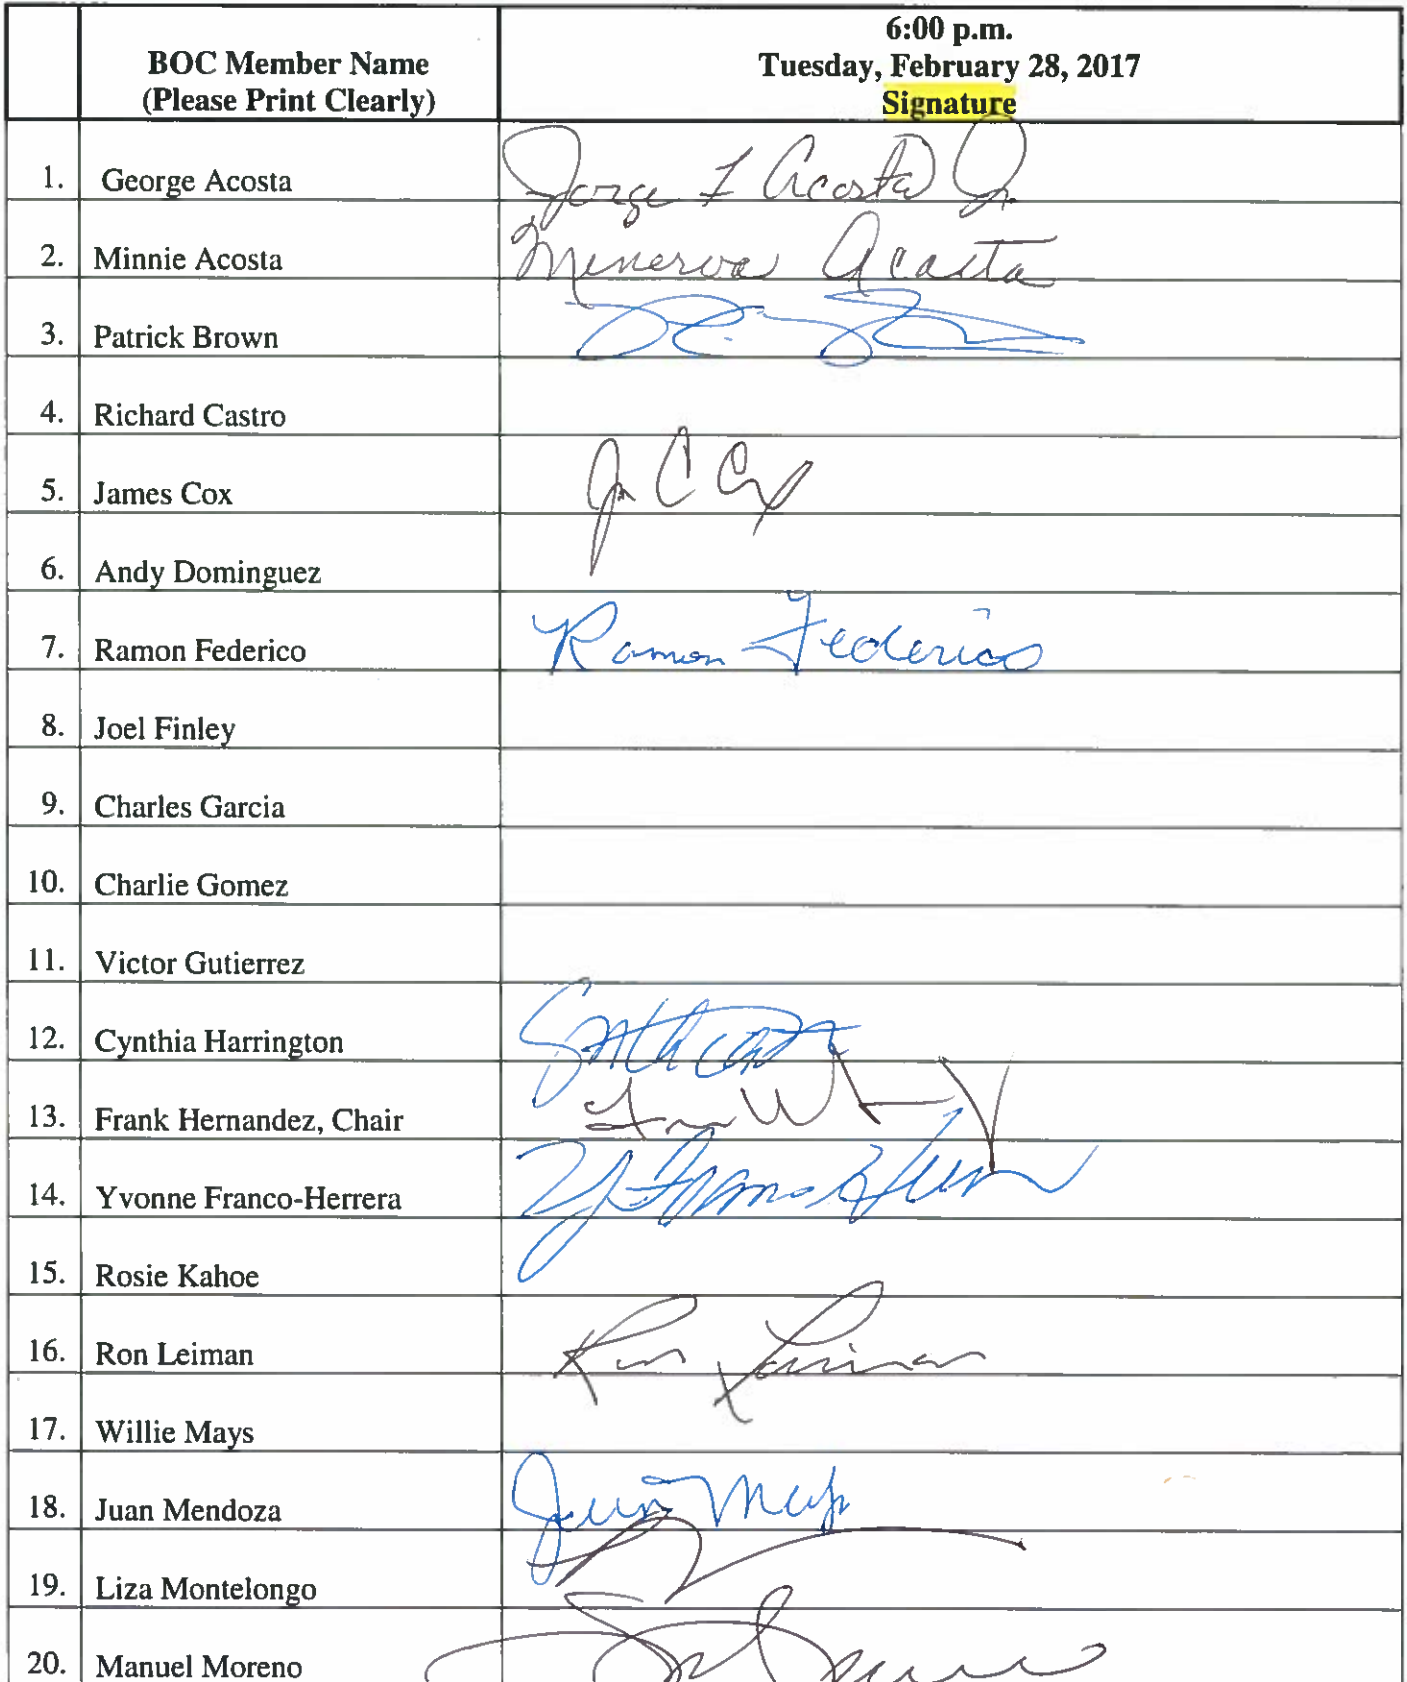 6:00 p.m.
BOC Member Name Tuesday, February 28, 2017
(Please Print Clearly) Signature
1. George Acosta Jorge F Acosta Jr.
2. Minnie Acosta Minerva Acosta
3. Patrick Brown
4. Richard Castro
5. James Cox
6. Andy Dominguez
7. Ramon Federico Ramon Federico
8. Joel Finley
9. Charles Garcia
10. Charlie Gomez
11. Victor Gutierrez
12. Cynthia Harrington
13. Frank Hernandez, Chair
14. Yvonne Franco-Herrera
15. Rosie Kahoe
16. Ron Leiman Ron Leiman
17. Willie Mays
18. Juan Mendoza Juan
19. Liza Montelongo
20. Manuel Moreno